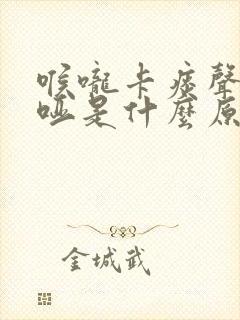 喉嚨卡痰聲
啞是什麼原
金城武